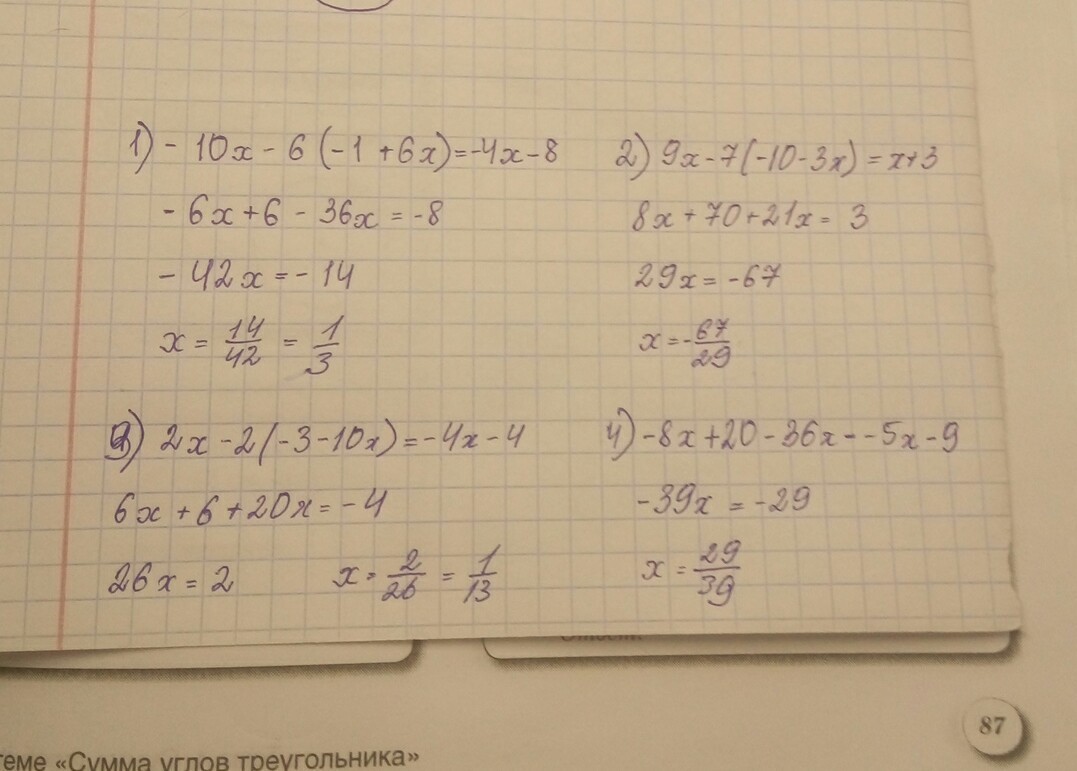 1) - 10x - 6 (-1 + 6x) = -4x - 8
- 6x + 6 - 36x = -8
- 42x = - 14
x = 14/42 = 1/3
2) 9x - 7(-10 - 3x) = x + 3
8x + 70 + 21x = 3
29x = -67
x = - 67/29
3) 2x - 2(-3 - 10x) = -4x - 4
6x + 6 + 20x = -4
26x = 2 x = 2/26 = 1/13
4) -8x + 20 - 36x = -5x - 9
-39x = -29
x = 29/39
87
теме «Сумма углов треугольника»